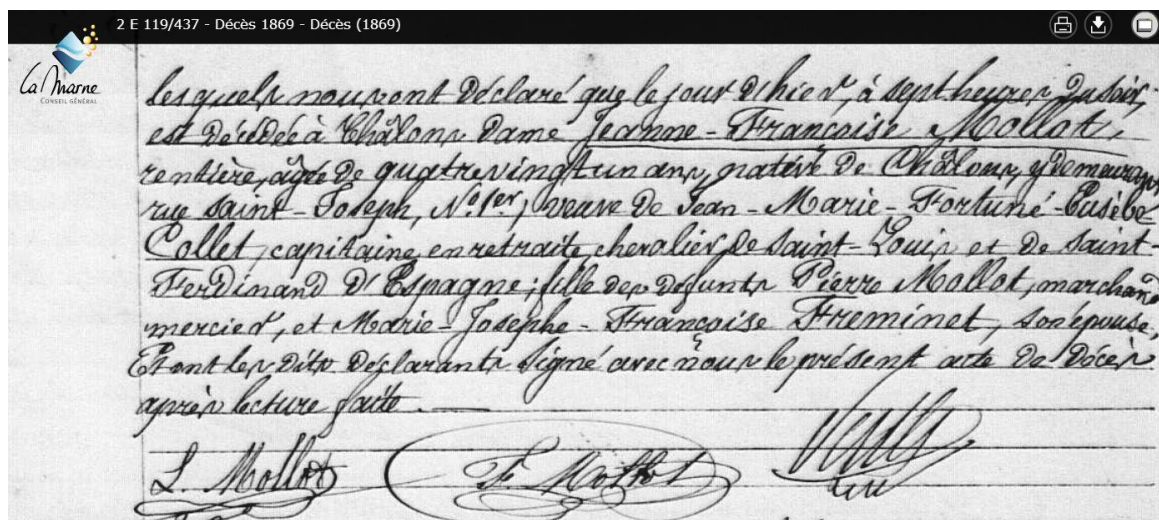 2 E 119/437 - Décès 1869 - Décès (1869)
La Marne
CONSEIL GÉNÉRAL
lesquels nous ont déclaré que le jour d'hier, à sept heures du soir,
est décédée à Châlons Dame Jeanne-Françoise Mollot,
rentière, âgée de quatre vingt un ans, native de Châlons, y demeurant,
rue Saint-Joseph, No. 1er, veuve de Jean-Marie-Fortuné-Eusèbe
Collet, capitaine en retraite, chevalier de Saint-Louis et de Saint-
Ferdinand d'Espagne, fille des defunts Pierre Mollot, marchand
mercier, et Marie-Josephe-Françoise Freminet, son épouse,
Et ont les dits déclarants signé avec nous le présent acte de décès
après lecture faite.
L. Mollot
F. Mollot